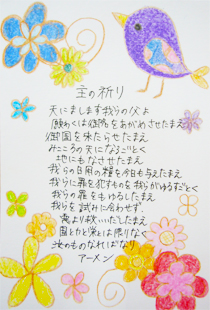 主の祈り
天にまします我らの父よ
願わくは御名をあがめさせたまえ
御国を来たらせたまえ
みこころの天になるごとく
地にもなさせたまえ
我らの日用の糧を今日も与えたまえ
我らに罪を犯すものを我らがゆるすごとく
我らの罪をもゆるしたまえ
我らを試みに合わせず
悪より救いいだしたまえ
国と力と栄とは限りなく
汝のものなればなり
アーメン